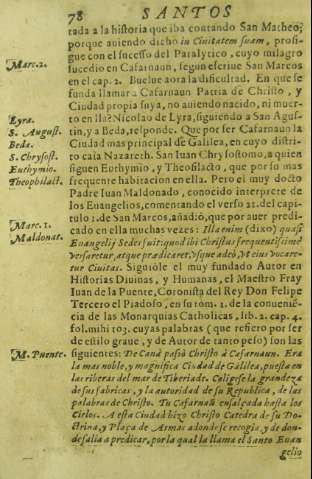 78 SANTOS
tada a la historia que iba contando San Matheo;
porque auiendo dicho in Ciuitatem suam, prosi-
gue con el sucesso del Paralytico, cuyo milagro
Marc. 2.
sucedio en Cafarnaun, segun escriue San Marcos
en el cap. 2. Buelue aora la dificultad. En que se
funda llamar a Cafarnaun Patria de Christo, y
Ciudad propia suya, no auiendo nacido, ni muer-
Lyra.
to en lla? Nicolao de Lyra, siguiendo a San Agus-
S. August.
tin, y a Beda, responde. Que por ser Cafarnaun la
Beda.
Ciudad mas principal de Galilea, en cuyo distri-
S. Chrysost.
to caia Nazareth. San Iuan Chrysostomo, a quien
Euthymio.
siguen Euthymio, y Theofilacto, que por su mas
Theophilact.
frequente habitacion en ella. Pero el muy docto
Padre Iuan Maldonado, conocido interprete de
los Euangelios, comentando el verso 21. del capi-
Marc. 1.
tulo 1. de San Marcos, añadió, que por auer predi-
Maldonat.
cado en ella muchas vezes: Illa enim (dixo) quasi
Euangelij Sedes fuit: quod ibi Christus frequentissimè
versaretur, atque prædicaret, vsque adeò, vt eius vocare-
tur Ciuitas. Siguiòle el muy fundado Autor en
Historias Diuinas, y Humanas, el Maestro Fray
Iuan de la Puente, Coronista del Rey Don Felipe
Tercero el Piadoso, en su tom. 1. de la conuenie-
cia de las Monarquias Catholicas, lib. 2. cap. 4.
fol. mihi 103. cuyas palabras (que refiero por ser
de estilo graue, y de Autor de tanto peso) son las
M. Puente.
siguientes: De Canà passò Christo à Cafarnaun. Era
la mas noble, y magnifica Ciudad de Galilea, puesta en
las riberas del mar de Tiberiade. Coligese la grandeza
de sus fabricas, y la autoridad de su Republica, de las
palabras de Christo. Tu Cafarnaun ensalçada hasta los
Cielos. A esta Ciudad hizo Christo Catedra de su Do-
ctrina, y Plaça de Armas adonde se recogia, y de don-
de salia a predicar, por la qual la llama el Santo Euan
gelio